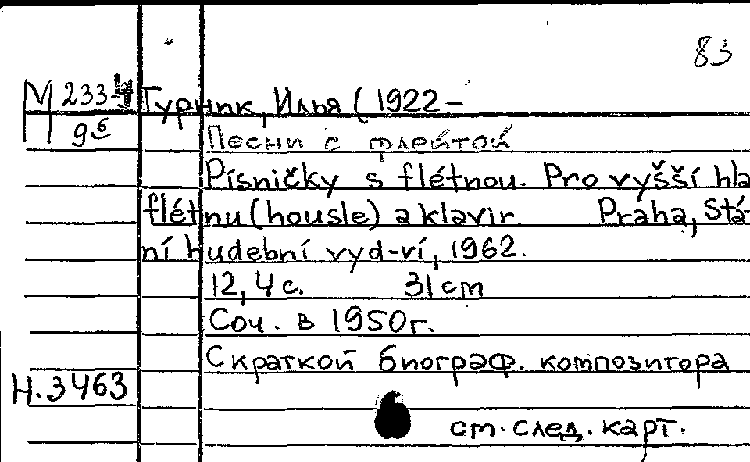 83
М 233-4 Турник, Илья (1922-
9б
Песни с флейтой
Písničky s flétnou. Pro vyšší hla
flétnu (housle) a klavir Praha, Stá-
ní hudební vyd-ví, 1962.
12, 4 с. 31 cm
Соч. в 1950 г.
С краткой биограф. композитора
Н.3463
см. след. карт.